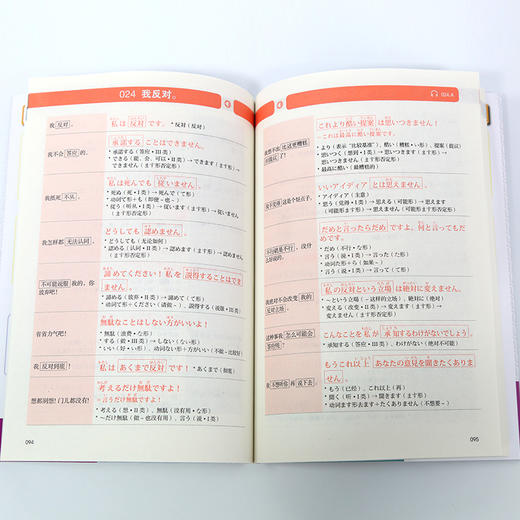 024 我反对。
我 反对 。
私は 反对 です。 * 反対（反対）
我不会 答应 的。
承諾する ことはできません。
* 承諾する（答应・III类）
* できる（能、会、可以・II类）→ できます（ます形）→ できません（ます形否定形）
我抵死 不从 。
私は死んでも 従いません 。
* 死ぬ（死・I类）→ 死んで（て形）
* 动词て形＋も（即使～也）
* 従う（听从・I类）→ 従います（ます形）→ 従いません（ます形否定形）
我怎样都 无法认同 。
どうしても 認めません 。
* どうしても（无论如何）
* 認める（认同・II类）→ 認めます（ます形）→ 認めません（ます形否定形）
不可能说服 我的，你放弃吧！
諦めてください！私を 説得することはできません 。
* 諦める（放弃・II类）→ 諦めて（て形）
* 动词て形＋ください（请做～）
* 説得する（说服・III类）
省省力气吧！
無駄なことはしない方がいいよ！
* 無駄（浪费・な形）
* する（做・III类）→ しない（ない形）
* いい（好・い形）→ ない形＋方がいい（不能～比较好）
我 反对到底 ！
私は あくまで反対 です！ * あくまで（彻底）
想都别想！门儿都没有！
考えるだけ無駄ですよ！
＝言うだけ無駄ですよ！
* 考える（想・II类）、無駄（没有用・な形）
* ～だけ無駄（做～也没有用）、言う（说・I类）
094
024.A
これより酷い提案 は思いつきません！
＝これは最高に酷い提案です。
* より（表示“比较基准”）、酷い（糟糕・い形）、提案（提议）
いいアイディア とは思えません 。
* アイディア（主意）
* 思う（觉得・I类）→ 思える（可能形）→ 思えます（可能形ます形）→ 思えません（可能形ます形否定形）
だめと言ったらだめ ですよ。何と言ってもだめです。
* だめ（不行・な形）
* 言う（说・I类）→ 言った（た形）
* 动词た形＋ら（如果～）
* 言う（说・I类）→ 言って（て形）
私の反対という立場 は絶対に変えません。
* ～という立場（～这样的立场）、絶対に（绝对）
こんなことを私が 承知するわけがないでしょう 。
* 承知する（答应・III类）、わけがない（绝对不可能）
我 不想听你 再 说下去 。
もうこれ以上 あなたの意見を聞きたくありません 。
* もう（已经）、これ以上（再）
* 聞く（听・I类）→ 聞きます（ます形）
* 动词ます形去ます＋たくありません（不想要～）
095